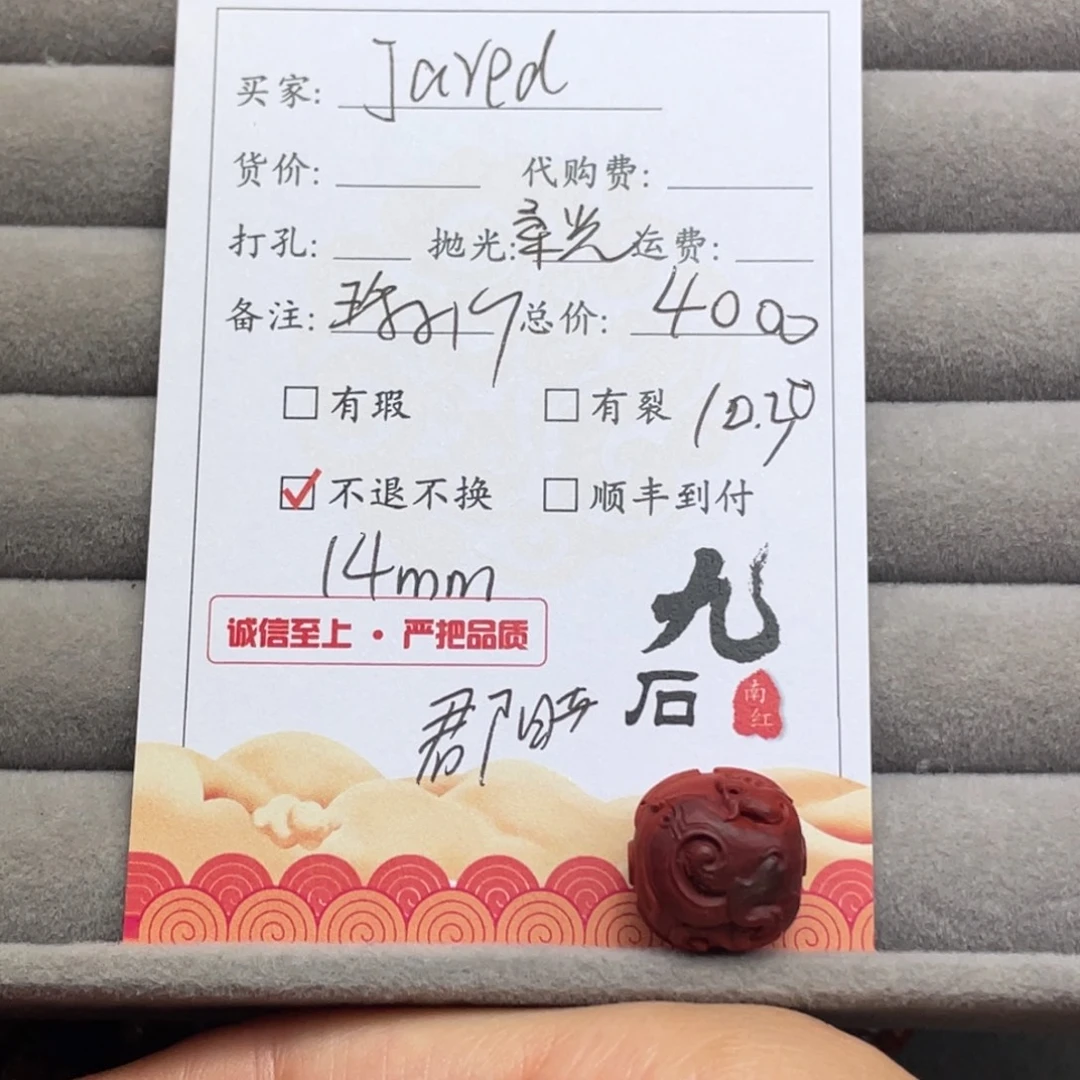 买家: Jared
货价: 代购费:
打孔: 抛光: 柔光 运费:
备注: 总价: 4000
有瑕 有裂
不退不换 顺丰到付
14mm
诚信至上·严把品质
九石
南红